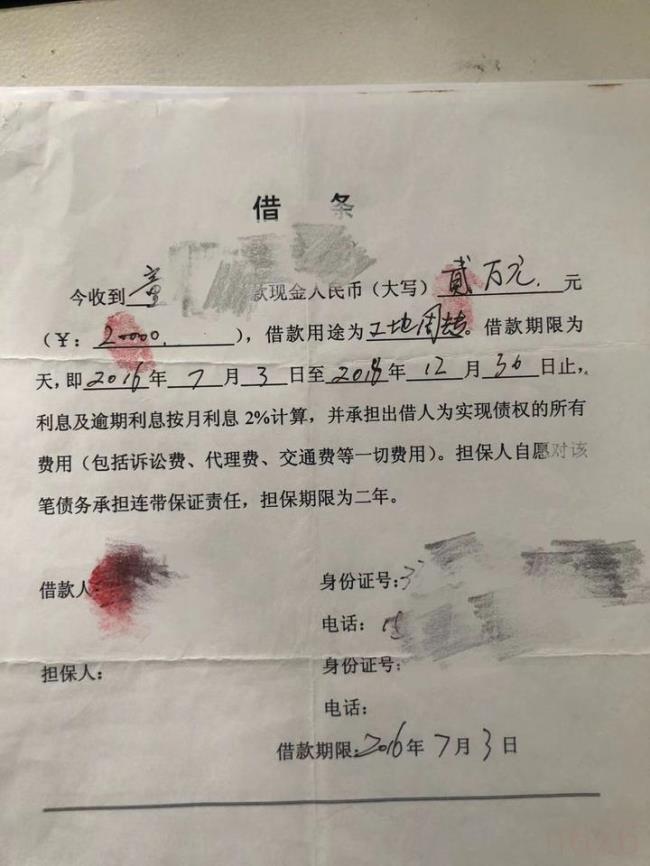 借 条
今收到 童 款现金人民币（大写）贰万元. 元
（￥: 20000. ），借款用途为工地周转。借款期限为
天，即2016年 7 月 3 日至2018年 12 月 30 日止，
利息及逾期利息按月利息 2%计算，并承担出借人为实现债权的所有
费用（包括诉讼费、代理费、交通费等一切费用）。担保人自愿对该
笔债务承担连带保证责任，担保期限为二年。
借款人:
身份证号: 3
电话: 15
担保人:
身份证号:
电话:
借款期限:2016年 7 月 3 日